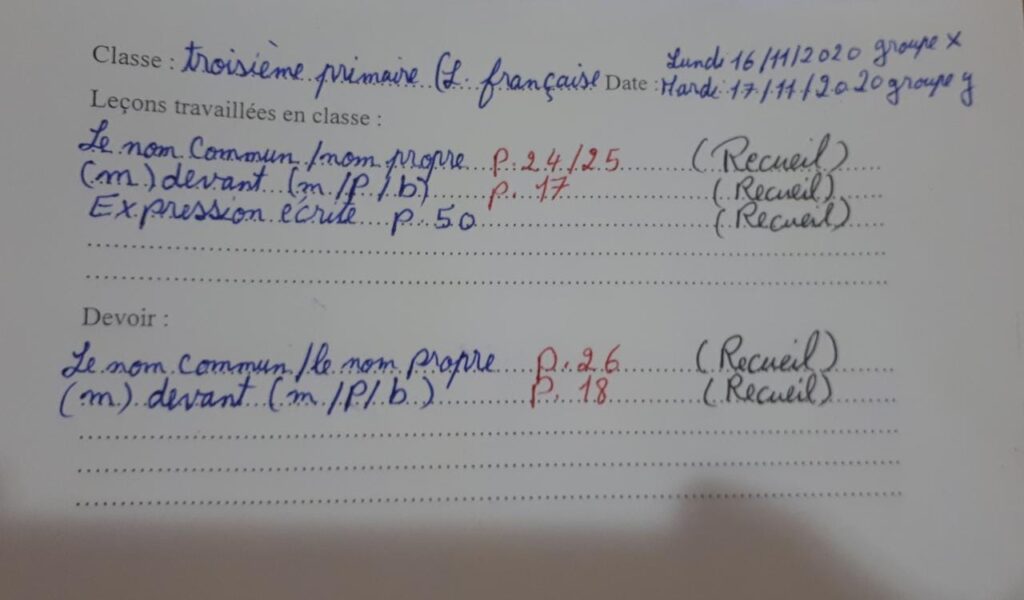 Lundi 16/11/2020 groupe x
Classe : troisième primaire (L. française Date : Mardi 17/11/2020 groupe y
Leçons travaillées en classe :
Le nom Commun/nom propre p. 24/25 (Recueil)
(m) devant (m/p/b) p. 17 (Recueil)
Expression écrite p. 50 (Recueil)
Devoir :
Le nom commun/le nom propre p. 26 (Recueil)
(m) devant (m/p/b) p. 18 (Recueil)